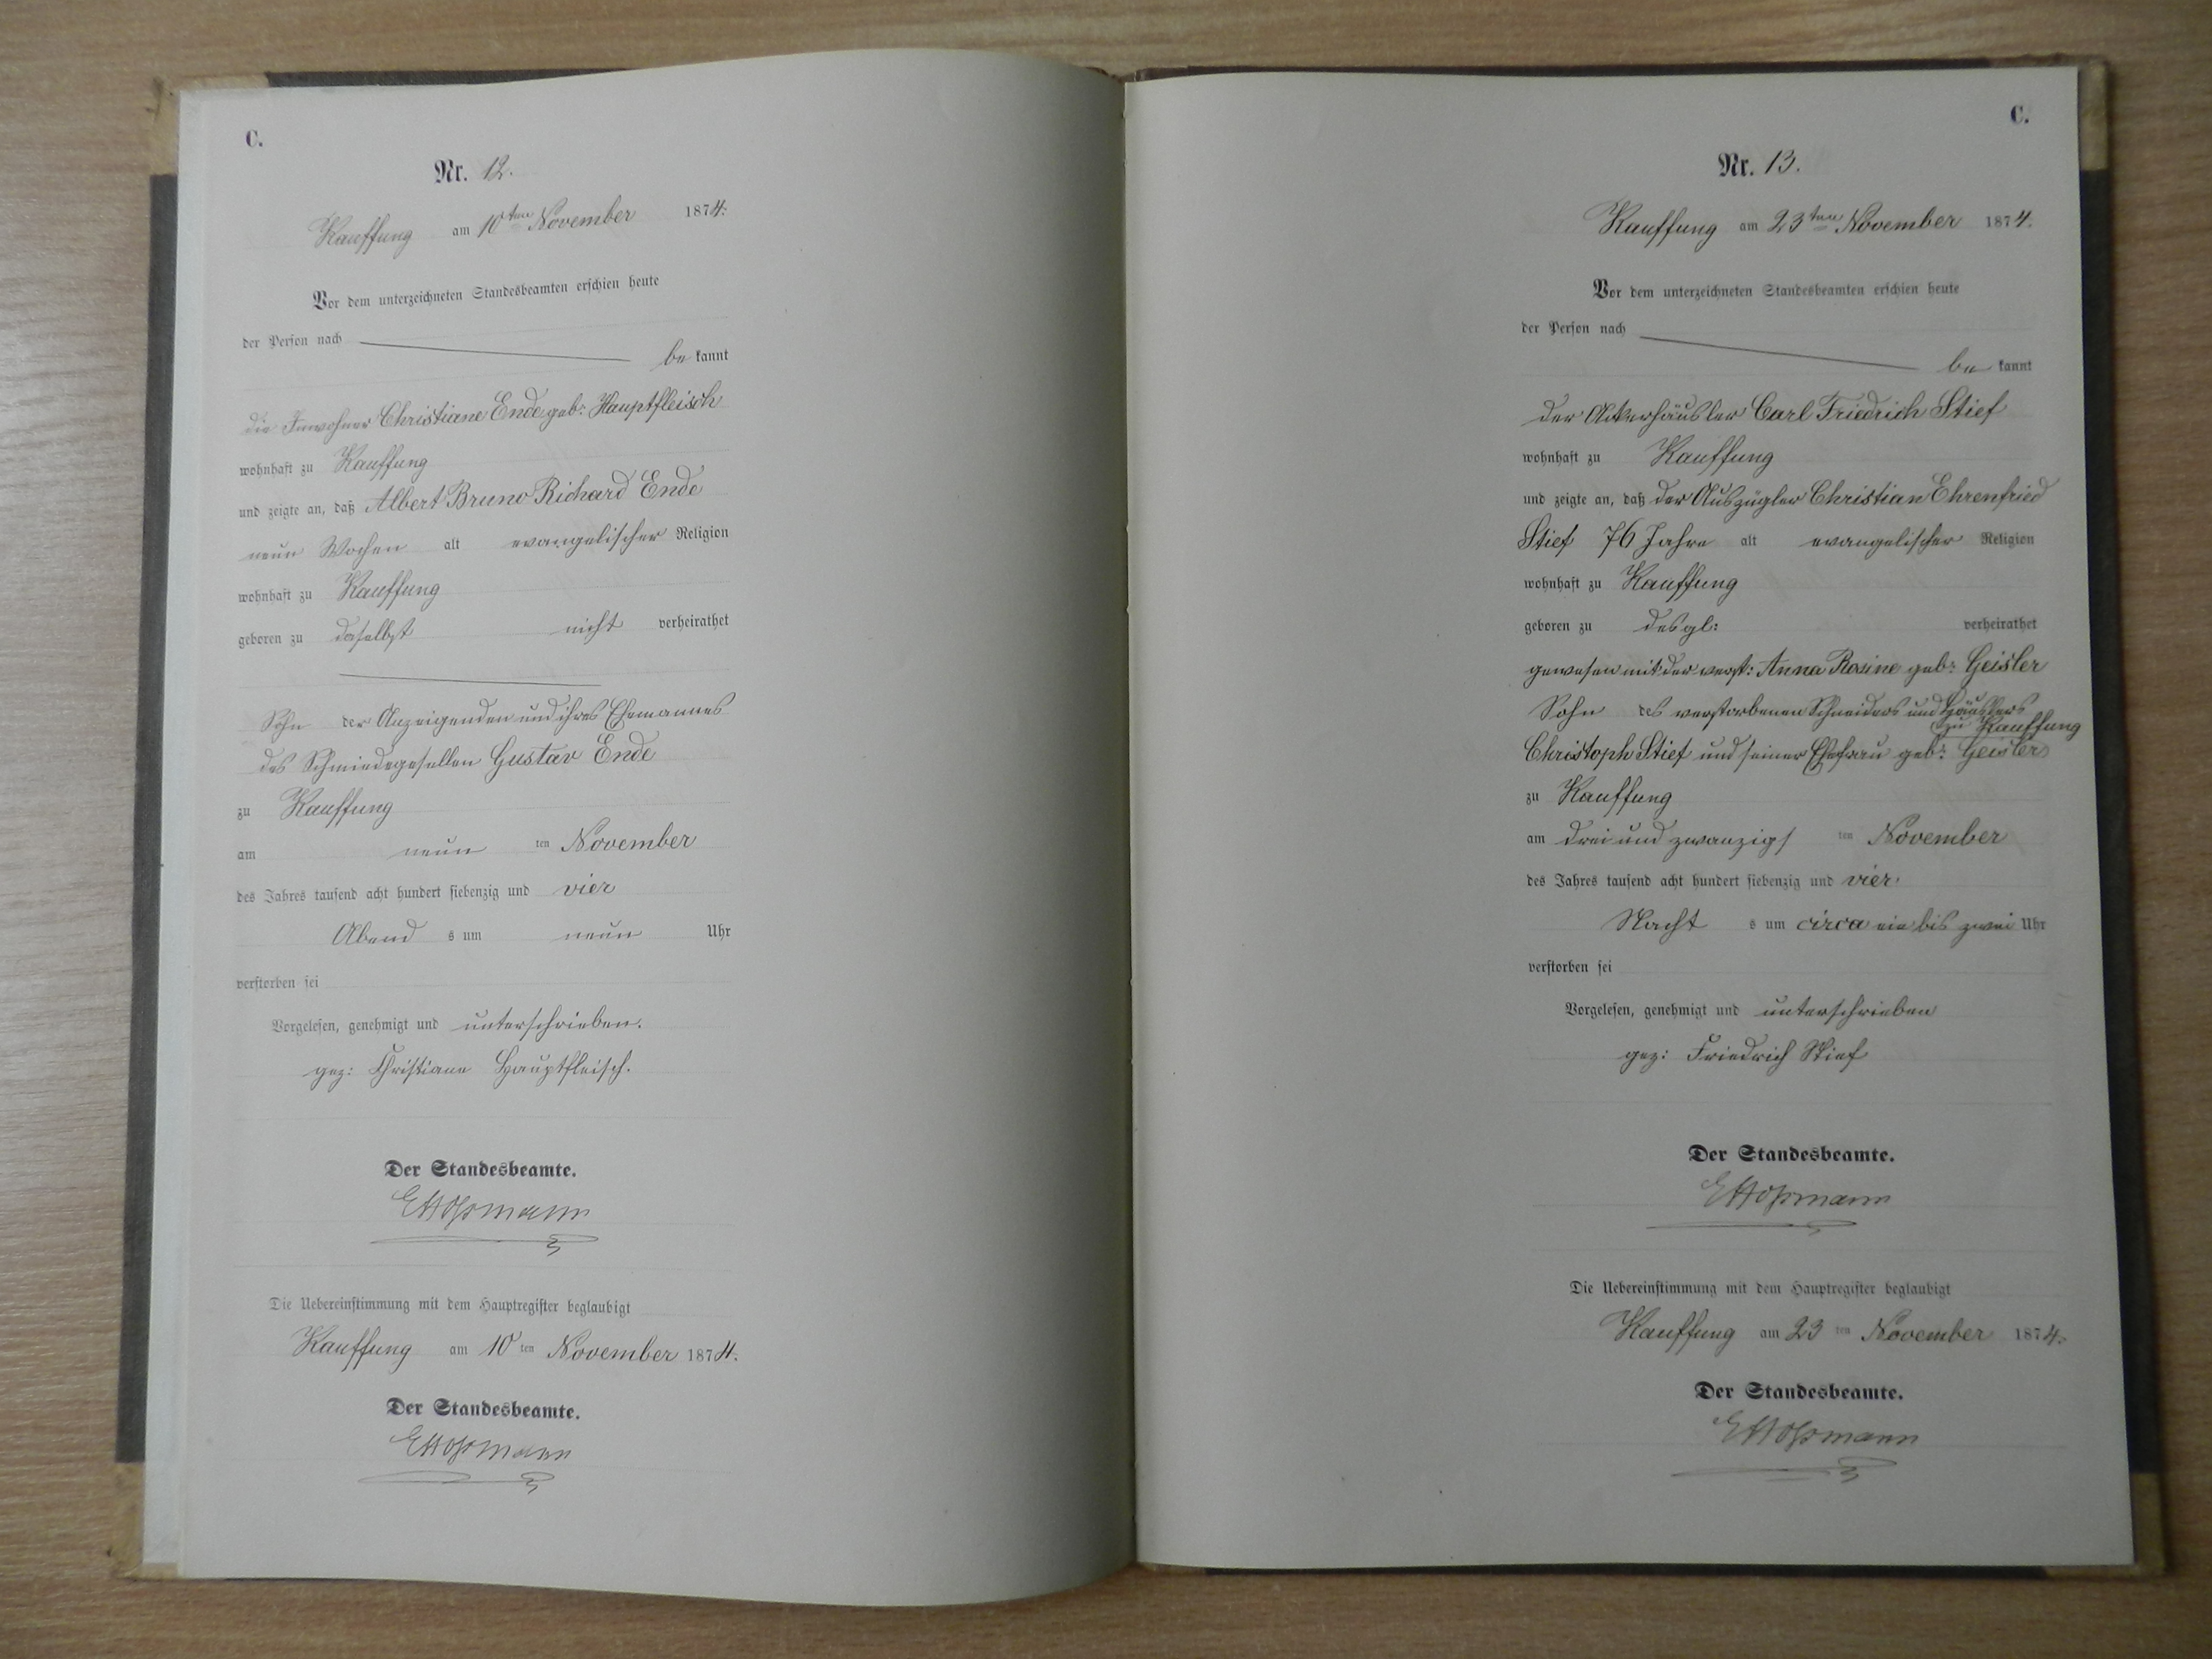 C.
Nr. 12.
Kauffung am 10ten November 1874.
Vor dem unterzeichneten Standesbeamten erschien heute
der Person nach
be kannt
die Inwohner Christiane Ende geb: Hauptfleisch
wohnhaft zu Kauffung
und zeigte an, daß Albert Bruno Richard Ende
neun Wochen alt evangelischer Religion
wohnhaft zu Kauffung
geboren zu daselbst nicht verheirathet
Sohn der Anzeigenden und ihres Ehemannes
des Schmiedegesellen Gustav Ende
zu Kauffung
am neun ten November
des Jahres tausend acht hundert siebenzig und vier
Abend s um neun Uhr
verstorben sei
Vorgelesen, genehmigt und unterschrieben.
gez: Christiane Hauptfleisch.
Der Standesbeamte.
Die Uebereinstimmung mit dem Hauptregister beglaubigt
Kauffung am 10 ten November 1874.
Der Standesbeamte.
C.
Nr. 13.
Kauffung am 23ten November 1874.
Vor dem unterzeichneten Standesbeamten erschien heute
der Person nach
be kannt
der Ackerhäusler Carl Friedrich Stief
wohnhaft zu Kauffung
und zeigte an, daß der Auszügler Christian Ehrenfried
Stief 76 Jahre alt evangelischer Religion
wohnhaft zu Kauffung
geboren zu desgl: verheirathet
gewesen mit der verst: Anna Rosine geb: Geisler
Sohn des verstorbenen Schneiders und Häuslers
zu Kauffung
Christoph Stief und seiner Ehefrau geb: Geisler
zu Kauffung
am drei und zwanzigs ten November
des Jahres tausend acht hundert siebenzig und vier
Nacht s um circa ein bis zwei Uhr
verstorben sei
Vorgelesen, genehmigt und unterschrieben
gez: Friedrich Stief
Der Standesbeamte.
Die Uebereinstimmung mit dem Hauptregister beglaubigt
Kauffung am 23 ten November 1874.
Der Standesbeamte.